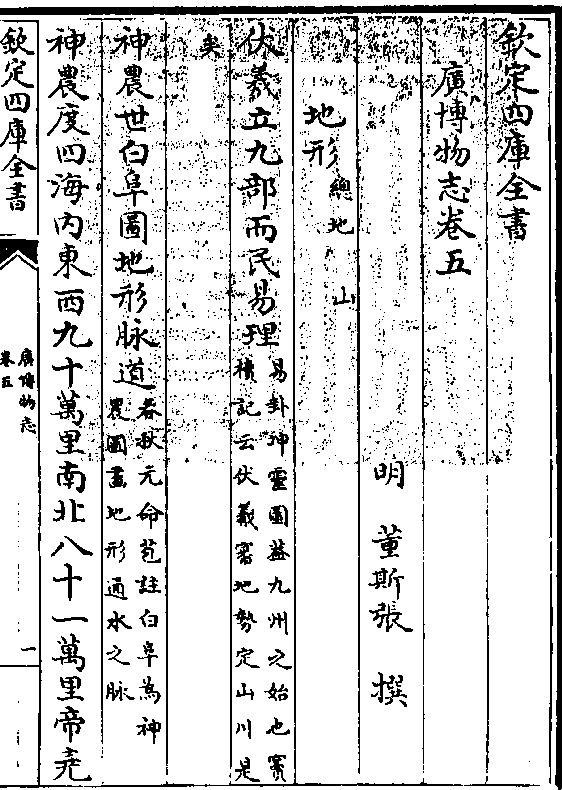 欽定四庫全書
廣博物志卷五
明 董斯張 撰
地形總地 山
伏羲立九部而民易理易卦坤靈圖葢九州之始也寶
櫝記云伏羲審地勢定山川是
矣
神農世白阜圖地形脉道春秋元命苞註白阜為神
農圖畫地形通水之脉
神農度四海内東西九十萬里南北八十一萬里帝堯
欽定四庫全書
廣博物志
卷五
一